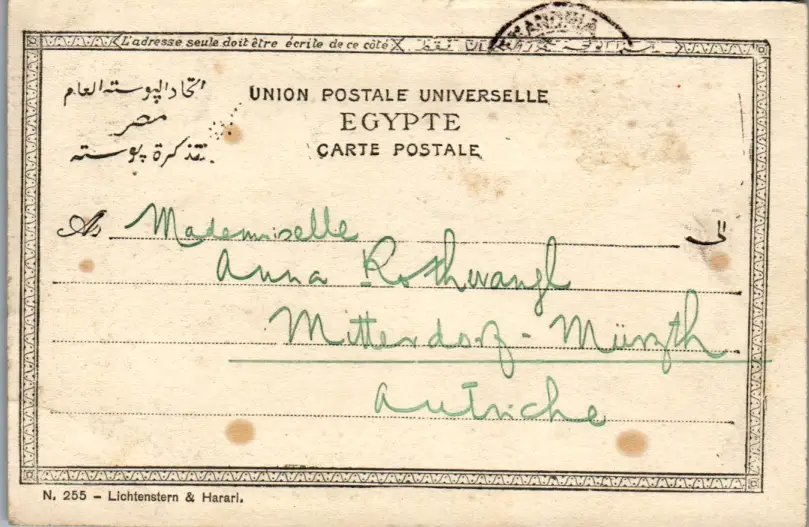 ANDRIA
L'adresse seule doit être écrite de ce côté
اتحاد البوسته العام
مصر
تذكرة بوسته
UNION POSTALE UNIVERSELLE
EGYPTE
CARTE POSTALE
A Mademoiselle الى
Anna Rothwangl
Mitterdorf - Mürzth
Autriche
N. 255 – Lichtenstern & Harari.